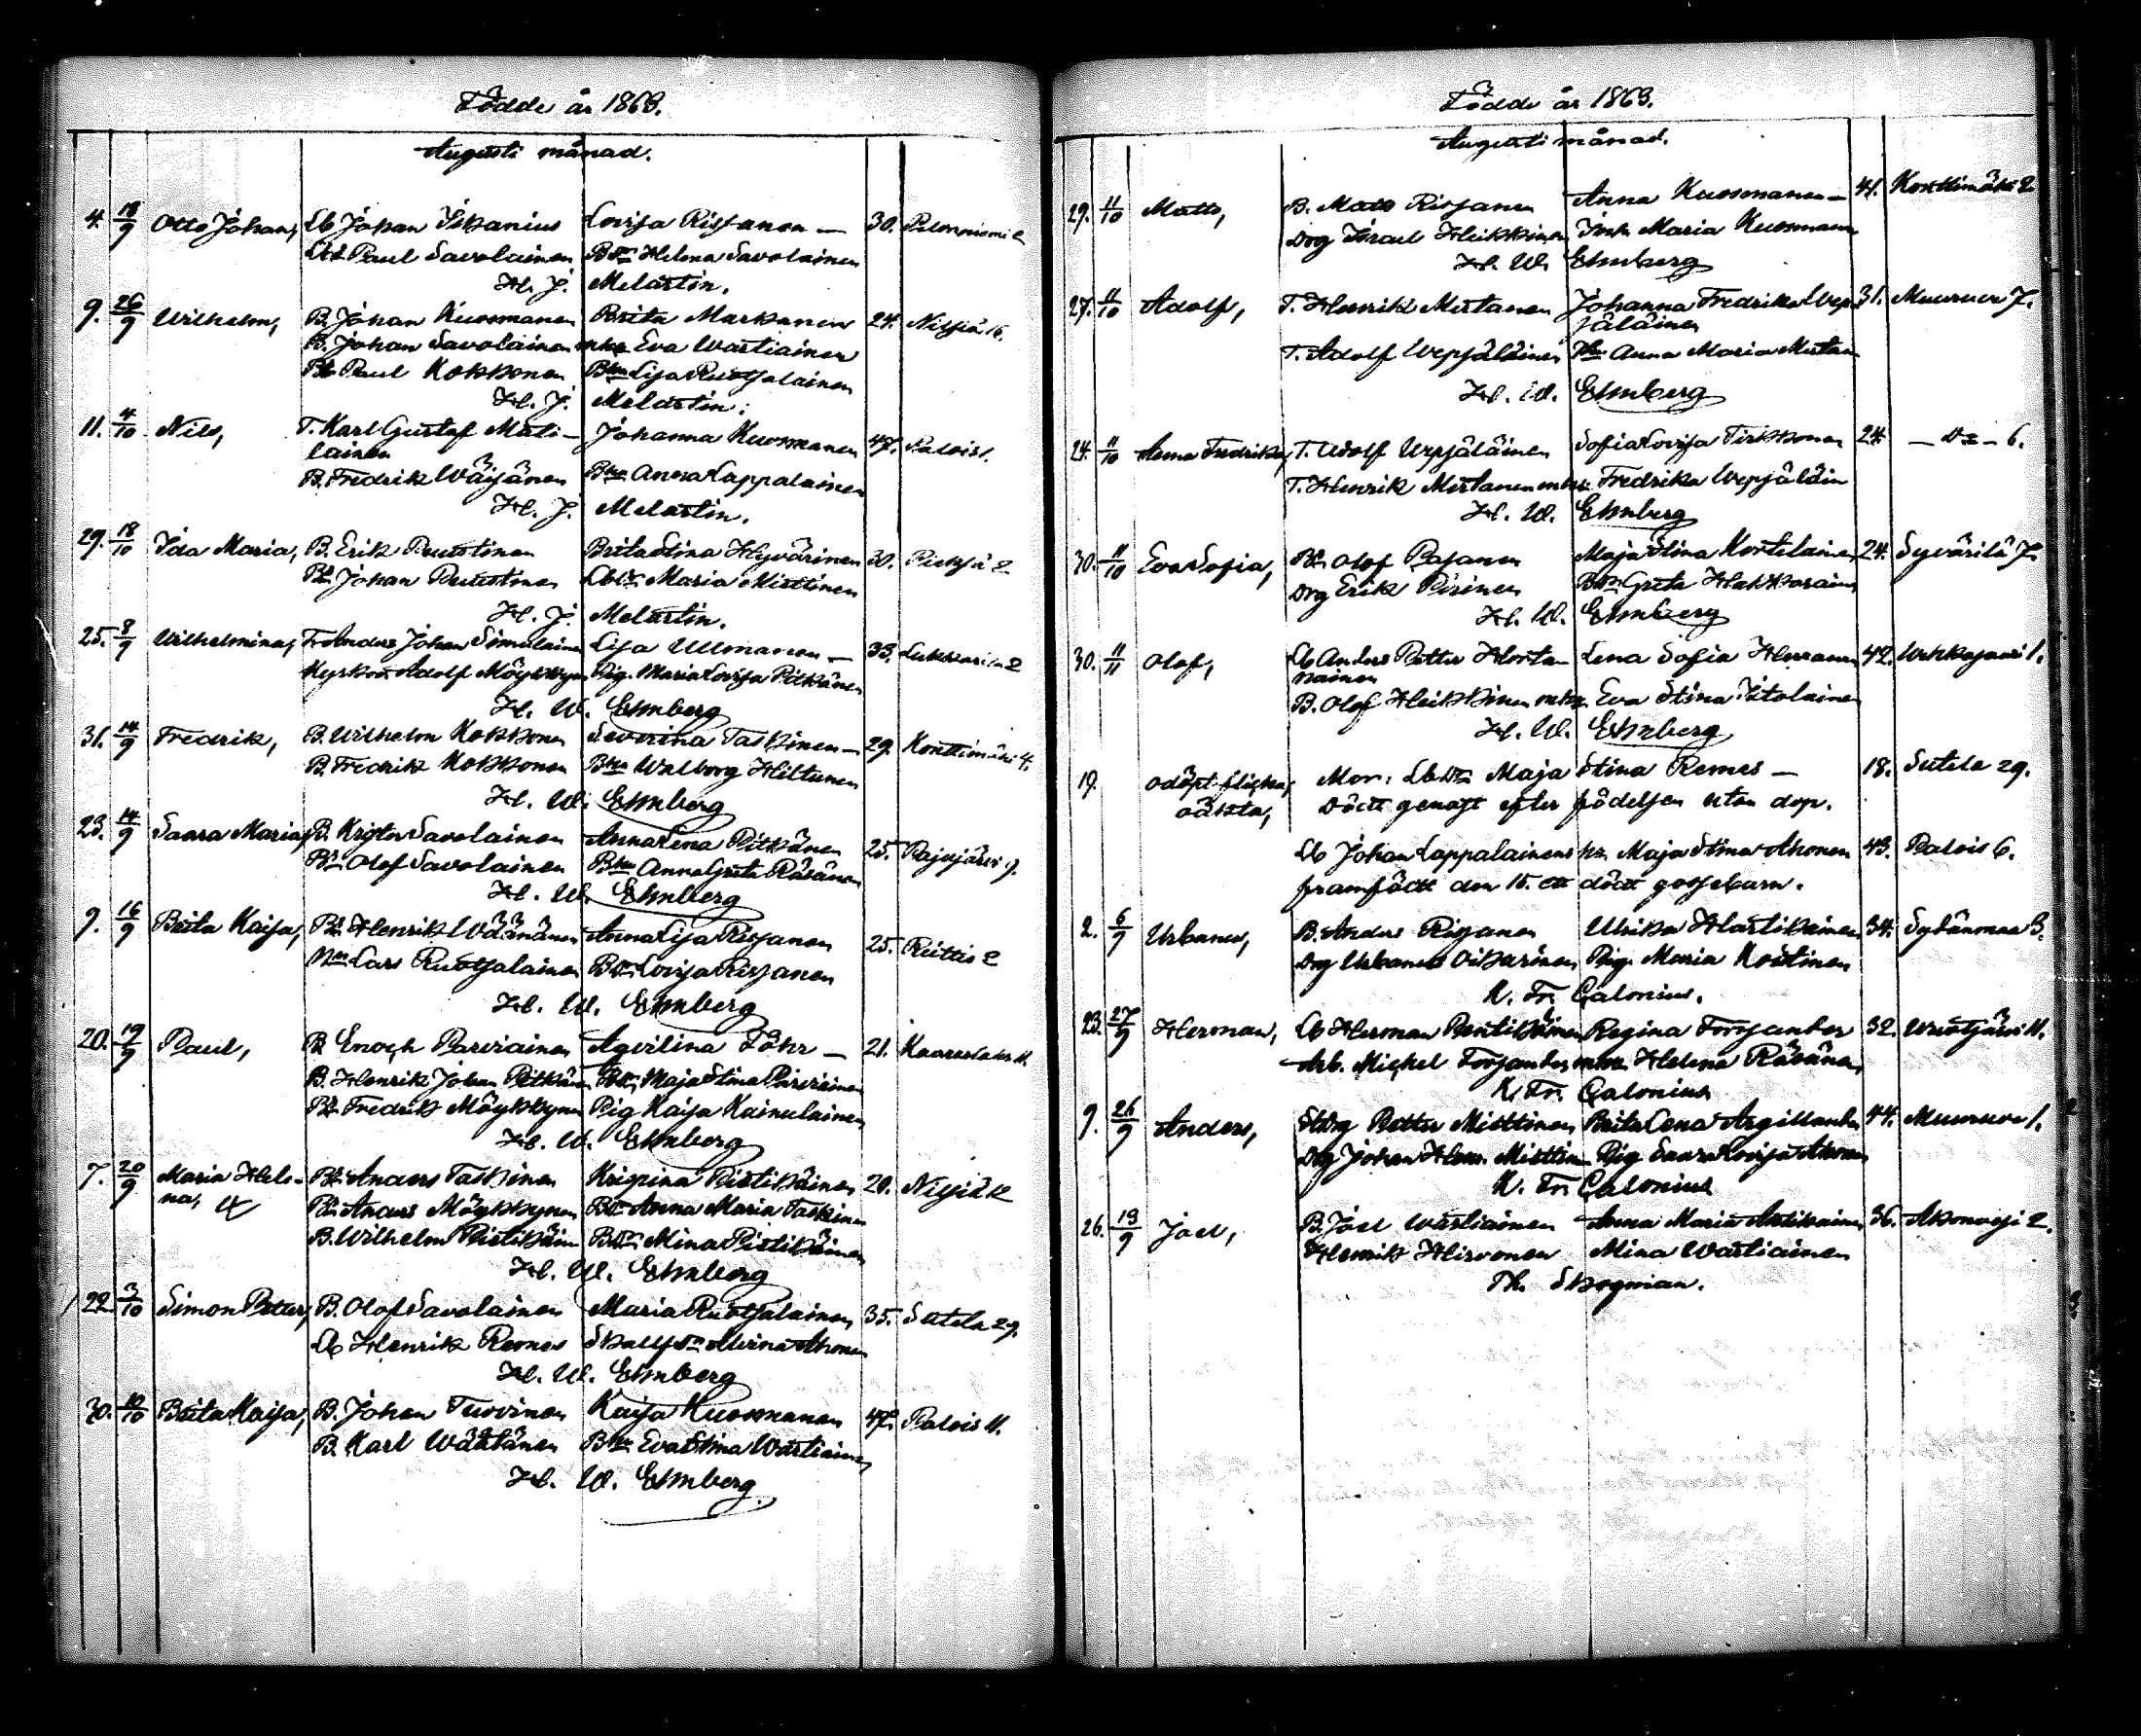 Födde år 1863.
Augusti månad.
4. 18/9 Otto Johan, Lb Johan Iikanius Lovisa Ristanen — 30.
Paul Savolainen Helena Savolainen
H. J. Melartin.
9. 26/9 Wilhelm, B. Johan Kuosmanen Brita Markanen 24. Nilsiä 16.
B. Johan Savolainen mhu Eva Wartiainen
Paul Kokkonen Bhu Lisa Ruotsalainen
H. J. Melartin.
11. 4/10 Nils, T. Karl Gustaf Mati- Johanna Kuosmanen 47. Palois 1.
lainen
B. Fredrik Wäisänen Bhu Anna Lappalainen
H. J. Melartin.
29. 18/10 Ida Maria, B. Erik Puustinen Brita Stina Hyvärinen 30.
Bs Johan Puustinen Maria Miettinen
H. J. Melartin.
25. 8/9 Wilhelmina, Anders Johan Simulainen Lisa Ullmanen — 33.
Adolf Möykkynen Pig. Maria Lovisa Pitkänen
H. W. Elmberg
31. 14/9 Fredrik, B. Wilhelm Kokkonen Severina Taskinen — 29. Konttimäki 4.
B. Fredrik Kokkonen Bhu Walborg Hiltunen
H. W. Elmberg
23. 14/9 Saara Maria, B. Krister Savolainen Anna Lena Pitkänen 25. Pajujärvi 9.
Bs Olof Savolainen Bhu Anna Greta Räsänen
H. W. Elmberg
9. 16/9 Brita Kaisa, Bs Henrik Wäänänen Anna Lisa Risjanen 25. Reittis 2
Lars Ruotsalainen Lovisa Risjanen
H. W. Elmberg
20. 19/9 Paul, B. Enoch Parviainen Agvilina Löhr — 21.
B. Henrik Johan Pitkänen Maja Stina Parviainen
Bs Fredrik Möykkynen Pig Kaisa Kainulainen
H. W. Elmberg
7. 20/9 Maria Hele- Bs Anders Taskinen Kristina Pietikäinen 20.
na,
Bs Anders Möykkynen Anna Maria Taskinen
B. Wilhelm Pietikäin Mina Pietikäinen
H. W. Elmberg
22. 3/10 Simon Petter, B. Olof Savolainen Maria Ruotsalainen 35. Sutela 29.
Lb Henrik Remes Alvina Ahonen
H. W. Elmberg
30. 10/10 Brita Kaisa, B. Johan Turvinen Kaisa Kuosmanen 47. Palois 11.
B. Karl Wäätänen Bhu Eva Stina Wartiainen
H. W. Elmberg
Födde år 1863.
Augusti månad.
29. 11/10 Matts, B. Mats Risjanen Anna Kuosmanen — 41. Konttimäki 2
Drg Israel Heikkinen Maria Kuosmanen
H. W. Elmberg
27. 11/10 Adolf, T. Henrik Mertanen Johanna Fredrika Wep- 31. Muuruvi 7.
jäläinen
T. Adolf Wepjäläinen Anna Maria Mertan
H. W. Elmberg
24. 11/10 Anna Fredrika, T. Adolf Wepjäläinen Sofia Lovisa Tirkkonen 24. — D:o — 6.
T. Henrik Mertanen mhu Fredrika Wepjäläin
H. W. Elmberg
30. 11/10 Eva Sofia, Bs Olof Pasanen Maja Stina Kortelainen 24. Syvärilä 7.
Drg Erik Pirinen Greta Hakkarainen
H. W. Elmberg
30. 11/11 Olof, Lb Anders Petter Horta- Lena Sofia Herranen 42.
nainen
B. Olof Heikkinen mhu Eva Stina Titolainen
H. W. Elmberg
19. Odöpt flicka, Mor: Maja Stina Remes — 18. Sutela 29.
oäkta, Död genast efter födelsen utan dop.
Lb Johan Lappalainens hu Maja Stina Ahonen 43. Palois 6.
framfödt den 15. ett dödt gossebarn.
2. 6/9 Urbanus, B. Anders Risjanen Ulrika Hartikainen 34. Sydänmaa 3.
Drg Urbanus Oikarinen Pig. Maria Koistinen
K. Fr. Calonius.
23. 27/9 Herman, Lb Herman Pentikäinen Regina Forsander 32.
Arb. Mickel Forsander mhu Helena Räsänen
K. Fr. Calonius
9. 26/9 Anders, Petter Miettinen Brita Lena Argillander 44. Muuruvi 1.
Drg Johan Miettin Pig Saara Lovisa Ahonen
K. Fr. Calonius
26. 19/9 Joel, B. Joel Wartiainen Anna Maria Antikainen 36. Akonvesi 2.
Henrik Hirvonen Mina Wartiainen
Th. Skogman.